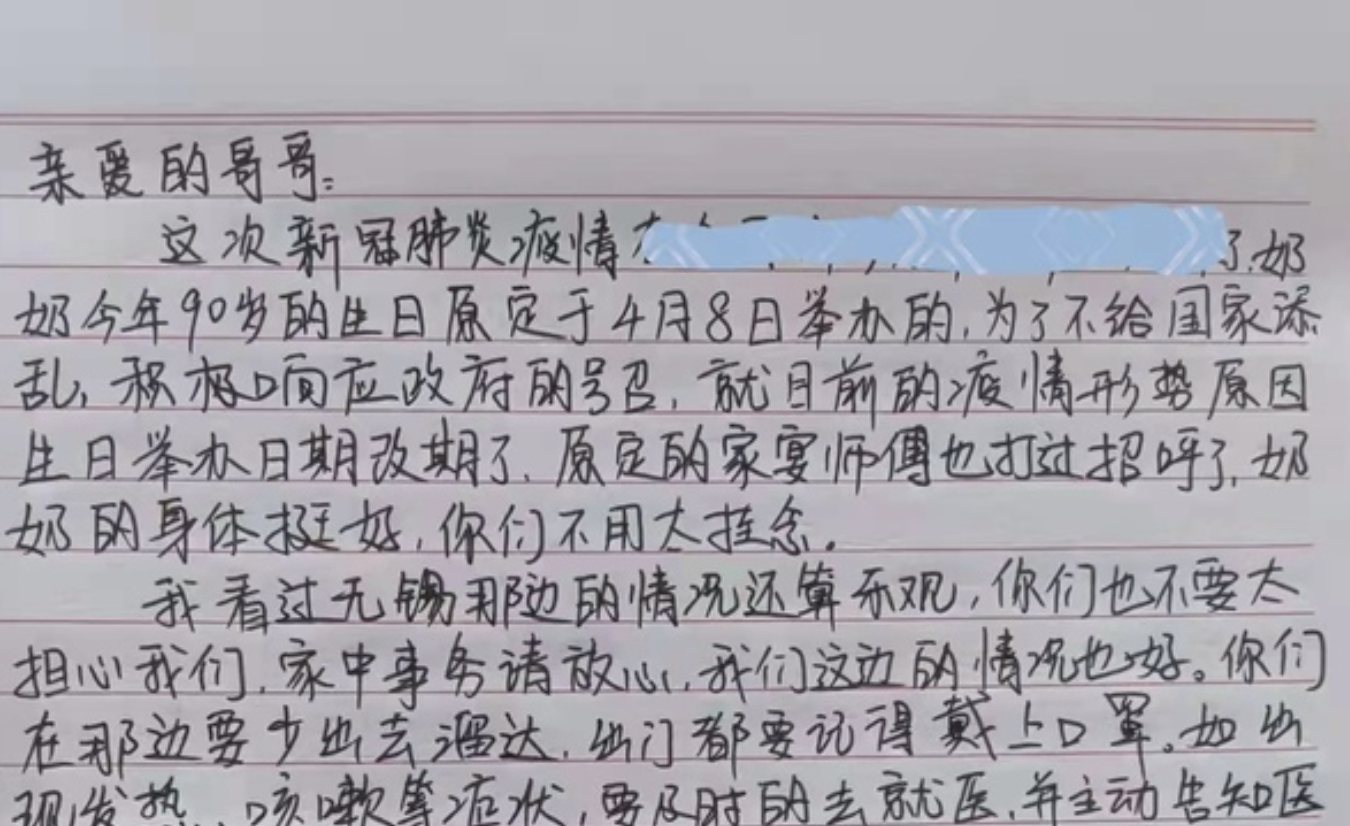 亲爱的哥哥:
这次新冠肺炎疫情 了,奶
奶今年90岁的生日原定于4月8日举办的,为了不给国家添
乱,积极响应政府的号召,就目前的疫情形势原因
生日举办日期改期了,原定的家宴师傅也打过招呼了,奶
奶的身体挺好,你们不用太挂念。
我看过无锡那边的情况还算乐观,你们也不要太
担心我们,家中事务请放心,我们这边的情况也好。你们
在那边要少出去溜达,出门都要记得戴上口罩。如出
现发热、咳嗽等症状,要及时的去就医,并主动告知医